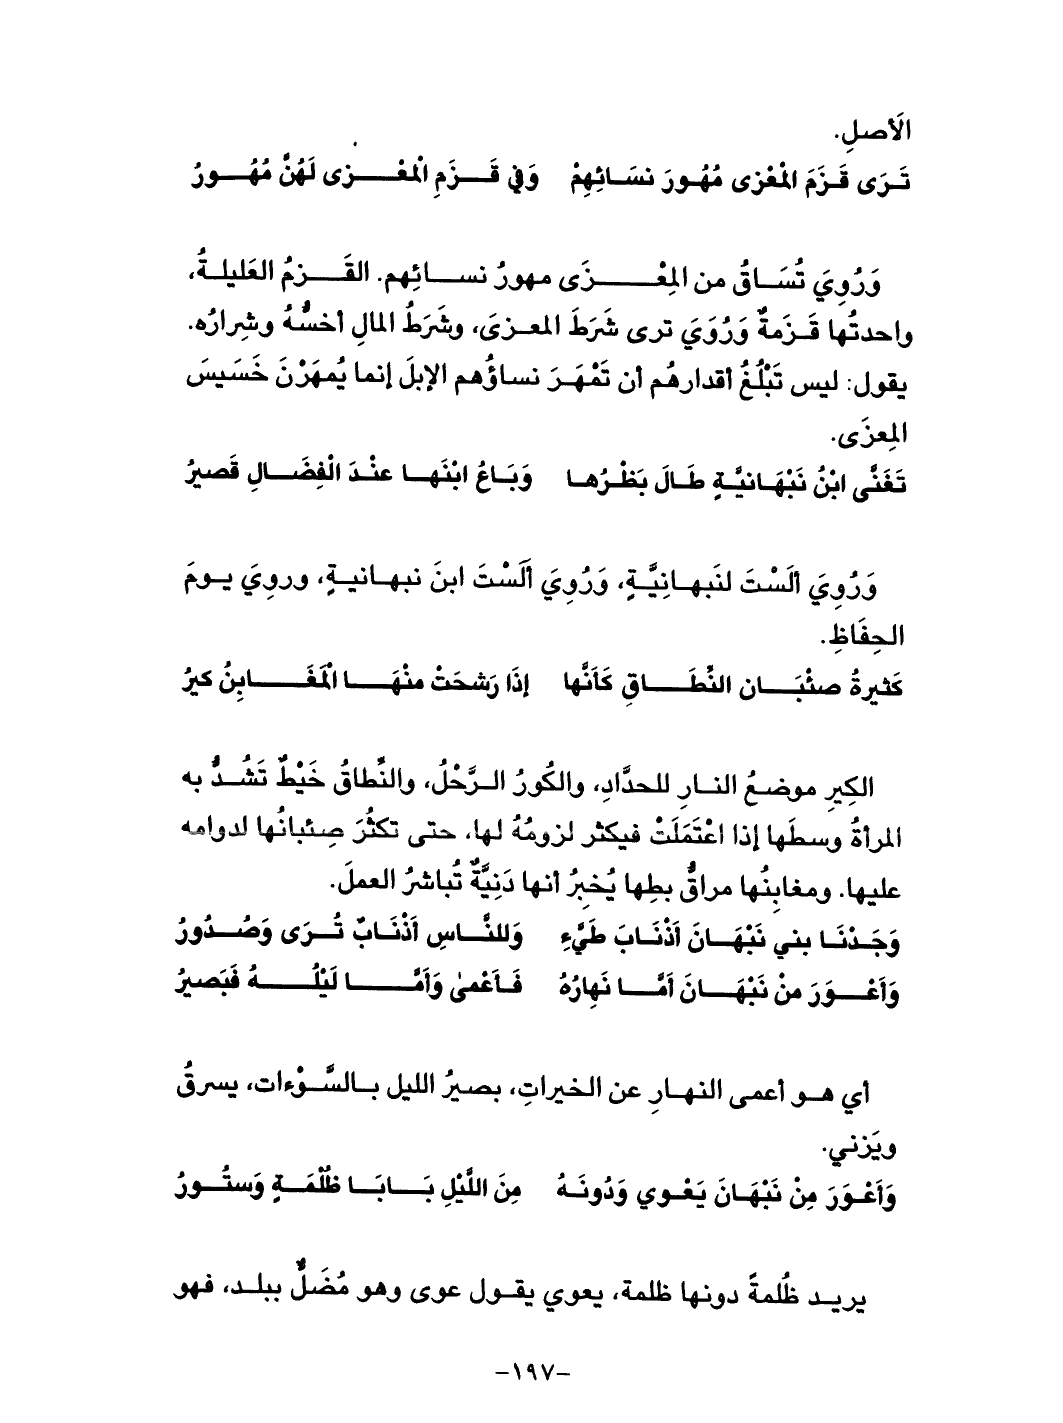 الَأصلِ.
تَـرَى قَـزَمَ المْعْزى مُهُـورَ نسَـائِهِمْ    وَفي قَـــزَمِ الْمعْــــزى لَهُنَّ مُهُـــورُ
وَرُوِيَ تُسَــاقُ من المِعْـــــزَى مهورُ نســـائِهم. القَـــزمُ القَليلـةُ،
واحدتُها قَـزَمةٌ وَرُوَيَ ترى شَرَطَ المعـزىَ، وشَرَطُ المالِ أخسُّهُ وشِرارُه.
يقول: ليس تَبْلُغُ أقدارهُم أن تَمْهَـرَ نساؤُهم الإبلَ إنما يُمهَرْنَ خَسَيسَ
المِعزَى.
تَغَنَّى ابْنُ نَبْهَـانيَّـةٍ طَـالَ بَظْـرُهـا    وَبَـاعُ ابْنَهــا عنْـدَ الْفِضَـــالِ قَصيرُ
وَرُوِيَ ألَسْتَ لنَبهـانِيَّـةٍ، وَرُوِيَ ألَسْتَ ابنَ نبهـانيـةٍ، وروِيَ يـومَ
الحِفَاظِ.
كَثيرةُ صئْبَـــان النِّطَـــاقِ كَأنَّها    إذَا رَشحَتْ منْهَـــا الْمَغَـــابِنُ كيرُ
الكِيرِ موضـعُ النـارِ للحدَّادِ، والكُورُ الـرَّحْلُ، والنِّطاقُ خَيْطٌ تَشُـدُّ به
المرأةُ وسطَها إذا اعْتَمَلَتْ فيكثر لزومُهُ لها، حتى تكثُرَ صِئبانُها لدوامه
عليها. ومغابِنُها مراقُّ بطِها يُخبِرُ أنها دَنِيَّةٌ تُباشرُ العملَ.
وَجَـدْنَـا بني نَبْهَــانَ أذْنَـابَ طَيِّءِ    وَللنَّــاسِ أذْنَـابٌ تُــرَى وَصُــدُورُ
وَأعْــوَرَ منْ نَبْهَـــانَ أمَّــا نَهِارُهُ    فَـأعْمىٰ وَأمَّـــــا لَيْلُـــــهُ فَبَصيرُ
أي هـو أعمى النهـارِ عن الخيراتِ، بصيرُ الليل بـالسَّـوْءات، يسرقُ
ويَزني.
وَأعْـوَرَ مِنْ نَبْهَـانَ يَعْـوي وَدُونَـهُ    مِنَ اللَّيْلِ بَــابَـا ظُلْمَــةٍ وَستُــورُ
يريـد ظُلمةً دونها ظلمة، يعوي يقـول عوى وهو مُضَلٌّ ببلـد، فهو
-١٩٧-